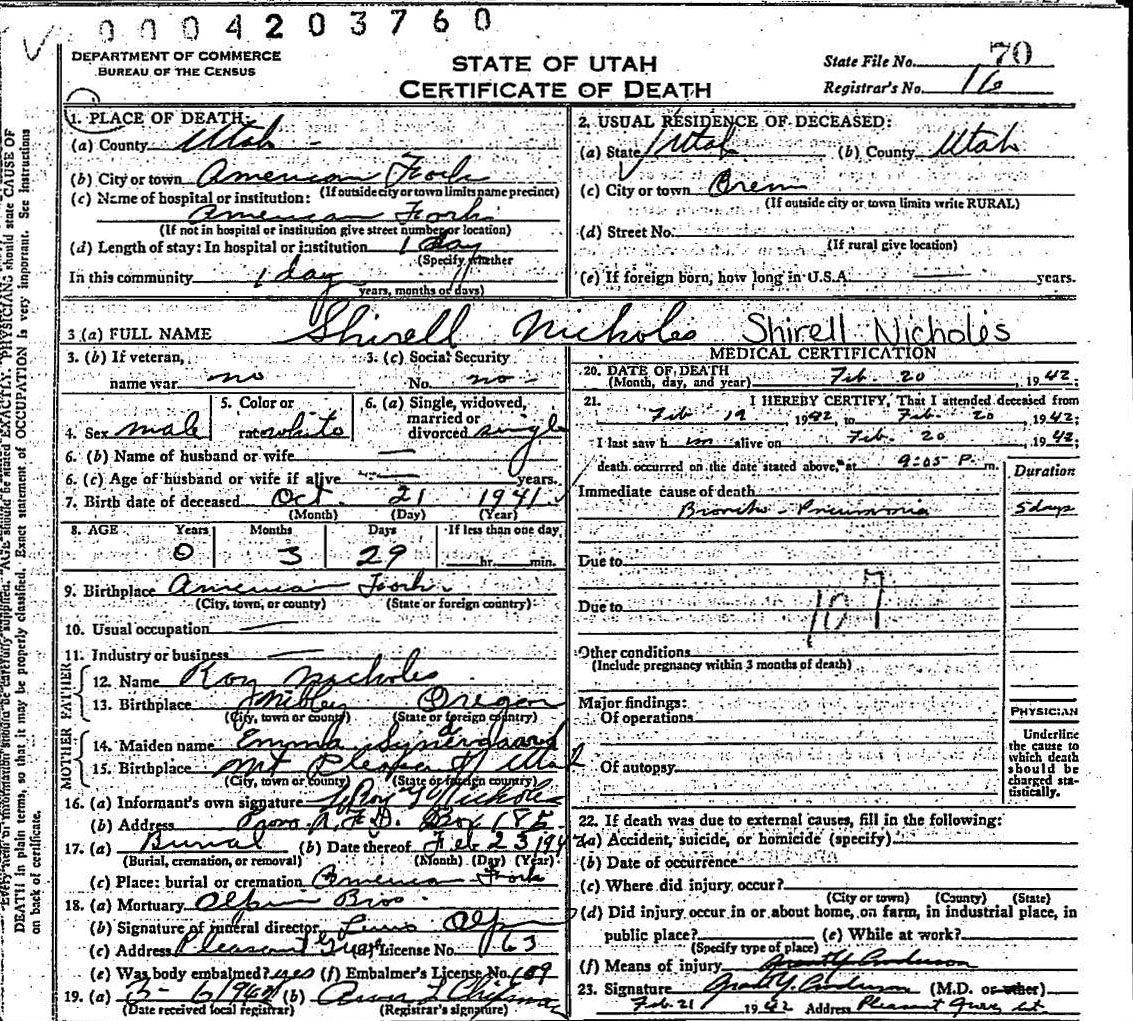 0004203760
DEPARTMENT OF COMMERCE
BUREAU OF THE CENSUS
STATE OF UTAH
CERTIFICATE OF DEATH
State File No. 70
Registrar's No. 16
1. PLACE OF DEATH:
(a) County Utah
(b) City or town American Fork
(If outside city or town limits name precinct)
(c) Name of hospital or institution:
American Fork
(If not in hospital or institution give street number or location)
(d) Length of stay: In hospital or institution 1 day
(Specify whether
In this community 1 day
years, months or days)
2. USUAL RESIDENCE OF DECEASED:
(a) State Utah (b) County Utah
(c) City or town Orem
(If outside city or town limits write RURAL)
(d) Street No.
(If rural give location)
(e) If foreign born, how long in U.S.A. years.
3 (a) FULL NAME Shirell Nicholes Shirell Nicholes
3. (b) If veteran, name war no
3. (c) Social Security No. no
4. Sex male
5. Color or race white
6. (a) Single, widowed, married or divorced single
6. (b) Name of husband or wife
6. (c) Age of husband or wife if alive years.
7. Birth date of deceased Oct. 21 1941
(Month) (Day) (Year)
8. AGE Years Months Days If less than one day
0 3 29 hr. min.
9. Birthplace American Fork
(City, town, or county) (State or foreign country)
10. Usual occupation
11. Industry or business
FATHER
12. Name Roy Nicholes
13. Birthplace Nibley Oregon
(City, town or county) (State or foreign country)
MOTHER
14. Maiden name Emma
15. Birthplace Mt Pleasant Utah
(City, town or county) (State or foreign country)
16. (a) Informant's own signature LeRoy Nicholes
(b) Address Provo R.F.D. Box 185
17. (a) Burial (b) Date thereof Feb 23 194
(Burial, cremation, or removal) (Month) (Day) (Year)
(c) Place: burial or cremation American Fork
18. (a) Mortuary Olpin Bros.
(b) Signature of funeral director Olpin
(c) Address Pleasant Grove (d) License No. 63
(e) Was body embalmed? yes (f) Embalmer's License No. 109
19. (a) 3-6 1942 (b) Chipman
(Date received local registrar) (Registrar's signature)
MEDICAL CERTIFICATION
20. DATE OF DEATH
(Month, day, and year) Feb. 20, 1942;
21. I HEREBY CERTIFY, That I attended deceased from
Feb 19 1942 to Feb. 20, 1942;
I last saw him alive on Feb. 20, 1942;
death occurred on the date stated above, at 9:05 P. m.
Duration
Immediate cause of death
Broncho-Pneumonia 5 days
Due to
Due to
107
Other conditions
(Include pregnancy within 3 months of death)
Major findings:
Of operations
Of autopsy
PHYSICIAN
Underline
the cause to
which death
should be
charged sta-
tistically.
22. If death was due to external causes, fill in the following:
(a) Accident, suicide, or homicide (specify)
(b) Date of occurrence
(c) Where did injury occur?
(City or town) (County) (State)
(d) Did injury occur in or about home, on farm, in industrial place, in
public place? (e) While at work?
(Specify type of place)
(f) Means of injury Grant Y. Anderson
23. Signature Grant Y. Anderson (M.D. or other)
Feb. 21 1942 Address Pleasant Grove Ut.
DEATH in plain terms, so that it may be properly classified. Exact statement of OCCUPATION is very important. See instructions
on back of certificate.